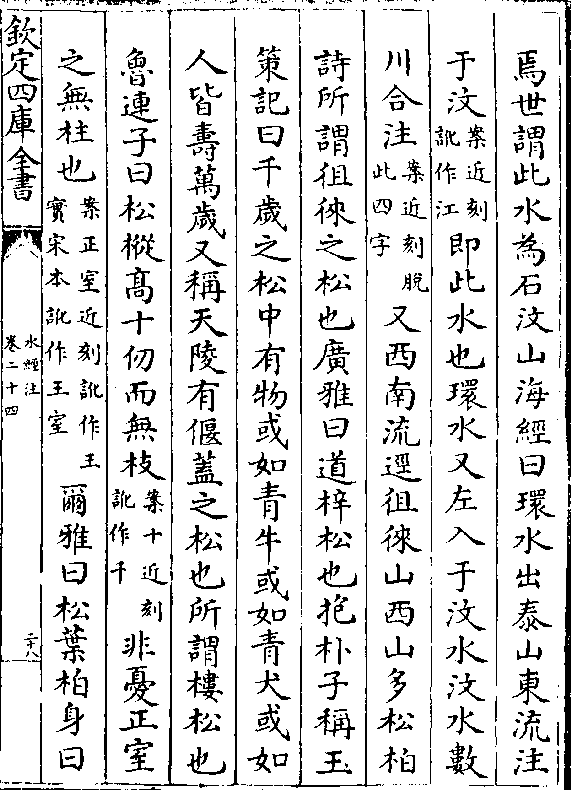 焉世謂此水為石汶山海經曰環水出泰山東流注
于汶案近刻訛作江即此水也環水又左入于汶水汶水數
川合注案近刻脫此四字又西南流逕徂徠山西山多松柏
詩所謂徂徠之松也廣雅曰道梓松也抱朴子稱玉
策記曰千歲之松中有物或如青牛或如青犬或如
人皆壽萬歲又稱天陵有偃蓋之松也所謂樓松也
魯連子曰松樅髙十仞而無枝案十近刻訛作千非憂正室
之無柱也案正室近刻訛作王實宋本訛作王室爾雅曰松葉柏身曰
欽定四庫全書
水經注
卷二十四
二十八